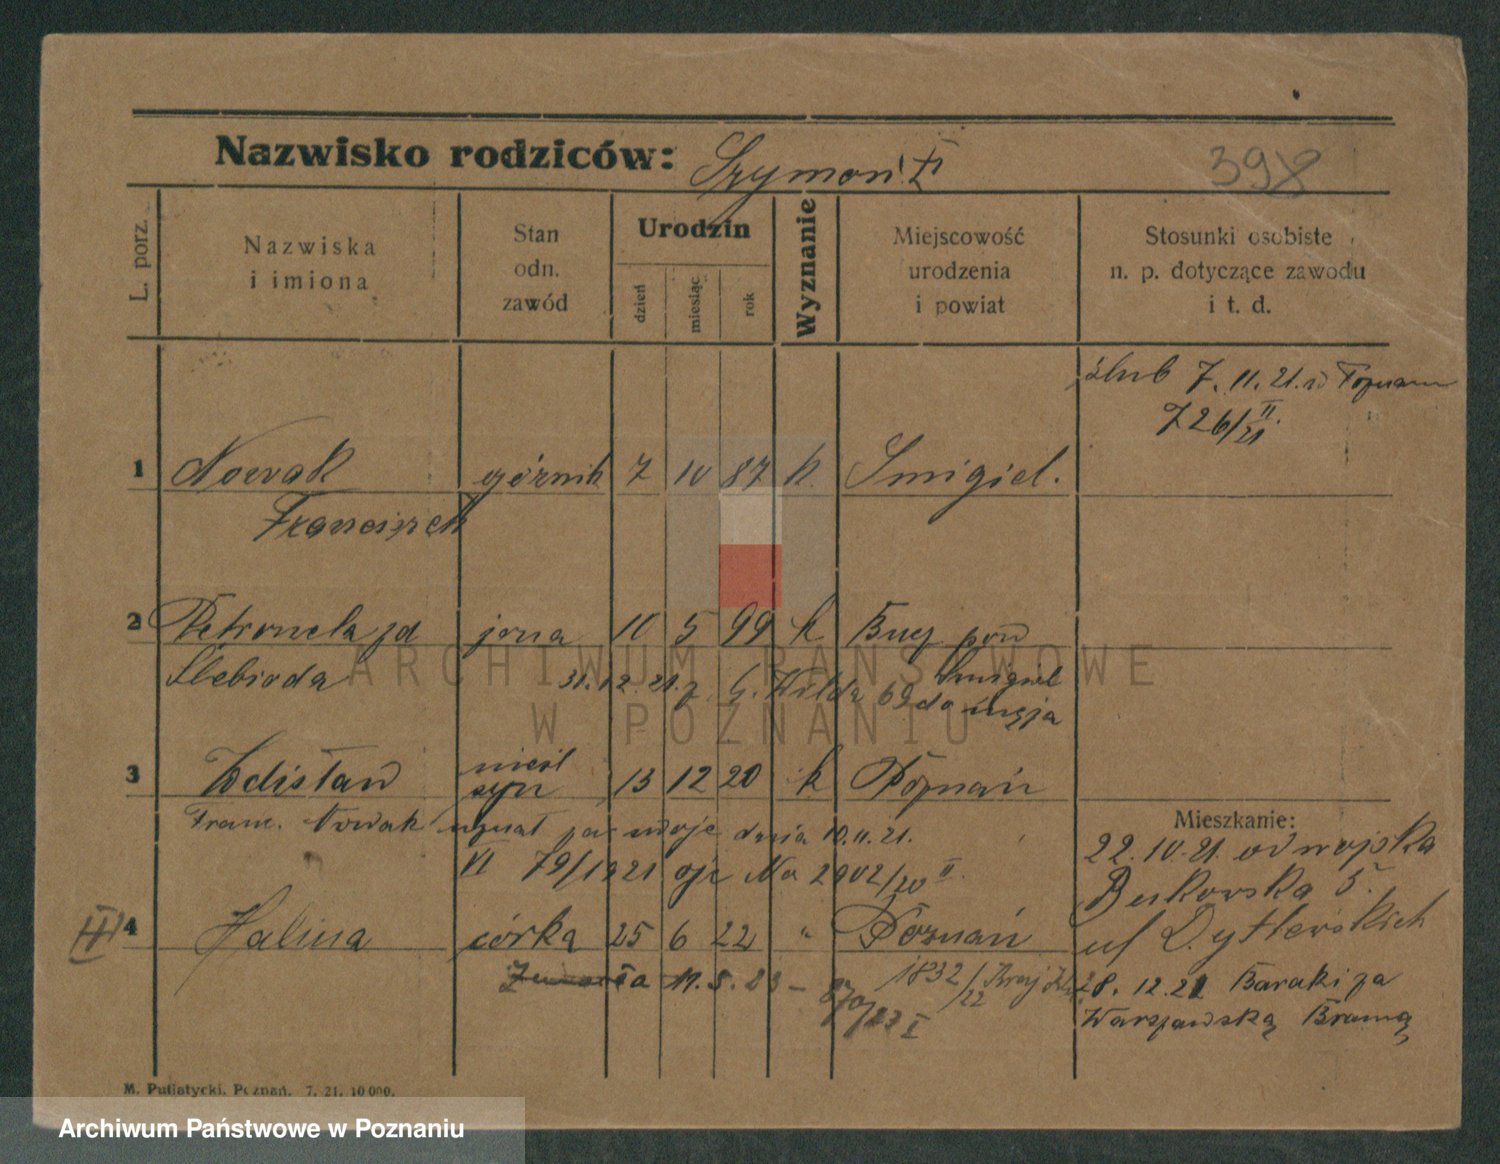 Nazwisko rodziców: Szymon
398
L. porz.
Nazwiska
i imiona
Stan
odn.
zawód
Urodzin
dzień
miesiąc
rok
Wyznanie
Miejscowość
urodzenia
i powiat
Stosunki osobiste
n. p. dotyczące zawodu
i t. d.
ślub 7. 11. 21. w Poznaniu
726/21 II.
1 Nowak górnik 7 10 87 k. Smigiel.
Franciszek
2 Petronela zd żona 10 5 99 k Bucz pow
Slebioda Smigiel
31. 12. 21. z G. Wilda 69 do męża
3 Zdisław nieśl syn 13 12 20 k Poznań
Franc. Nowak uznał za swoje dnia 10. 11. 21.
VI 79/1921 No 2902/20 II.
Mieszkanie:
22. 10. 21. od wojska
Bukowska 5.
4 Halina córka 25 6 22 " Poznań
ul
III
ła 19. 5. 23 – 870/23 I
1832/22
28. 12. 21 Baraki za
Warszawską Bramą
M. Putiatycki, Poznań. 7. 21. 10 000.
ARCHIWUM PAŃSTWOWE
W POZNANIU
Archiwum Państwowe w Poznaniu